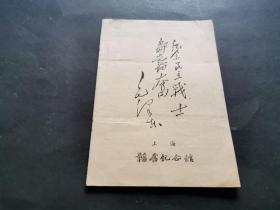 纪念民主战士
鄒韜奋
毛泽东
上海
韜奋纪念馆